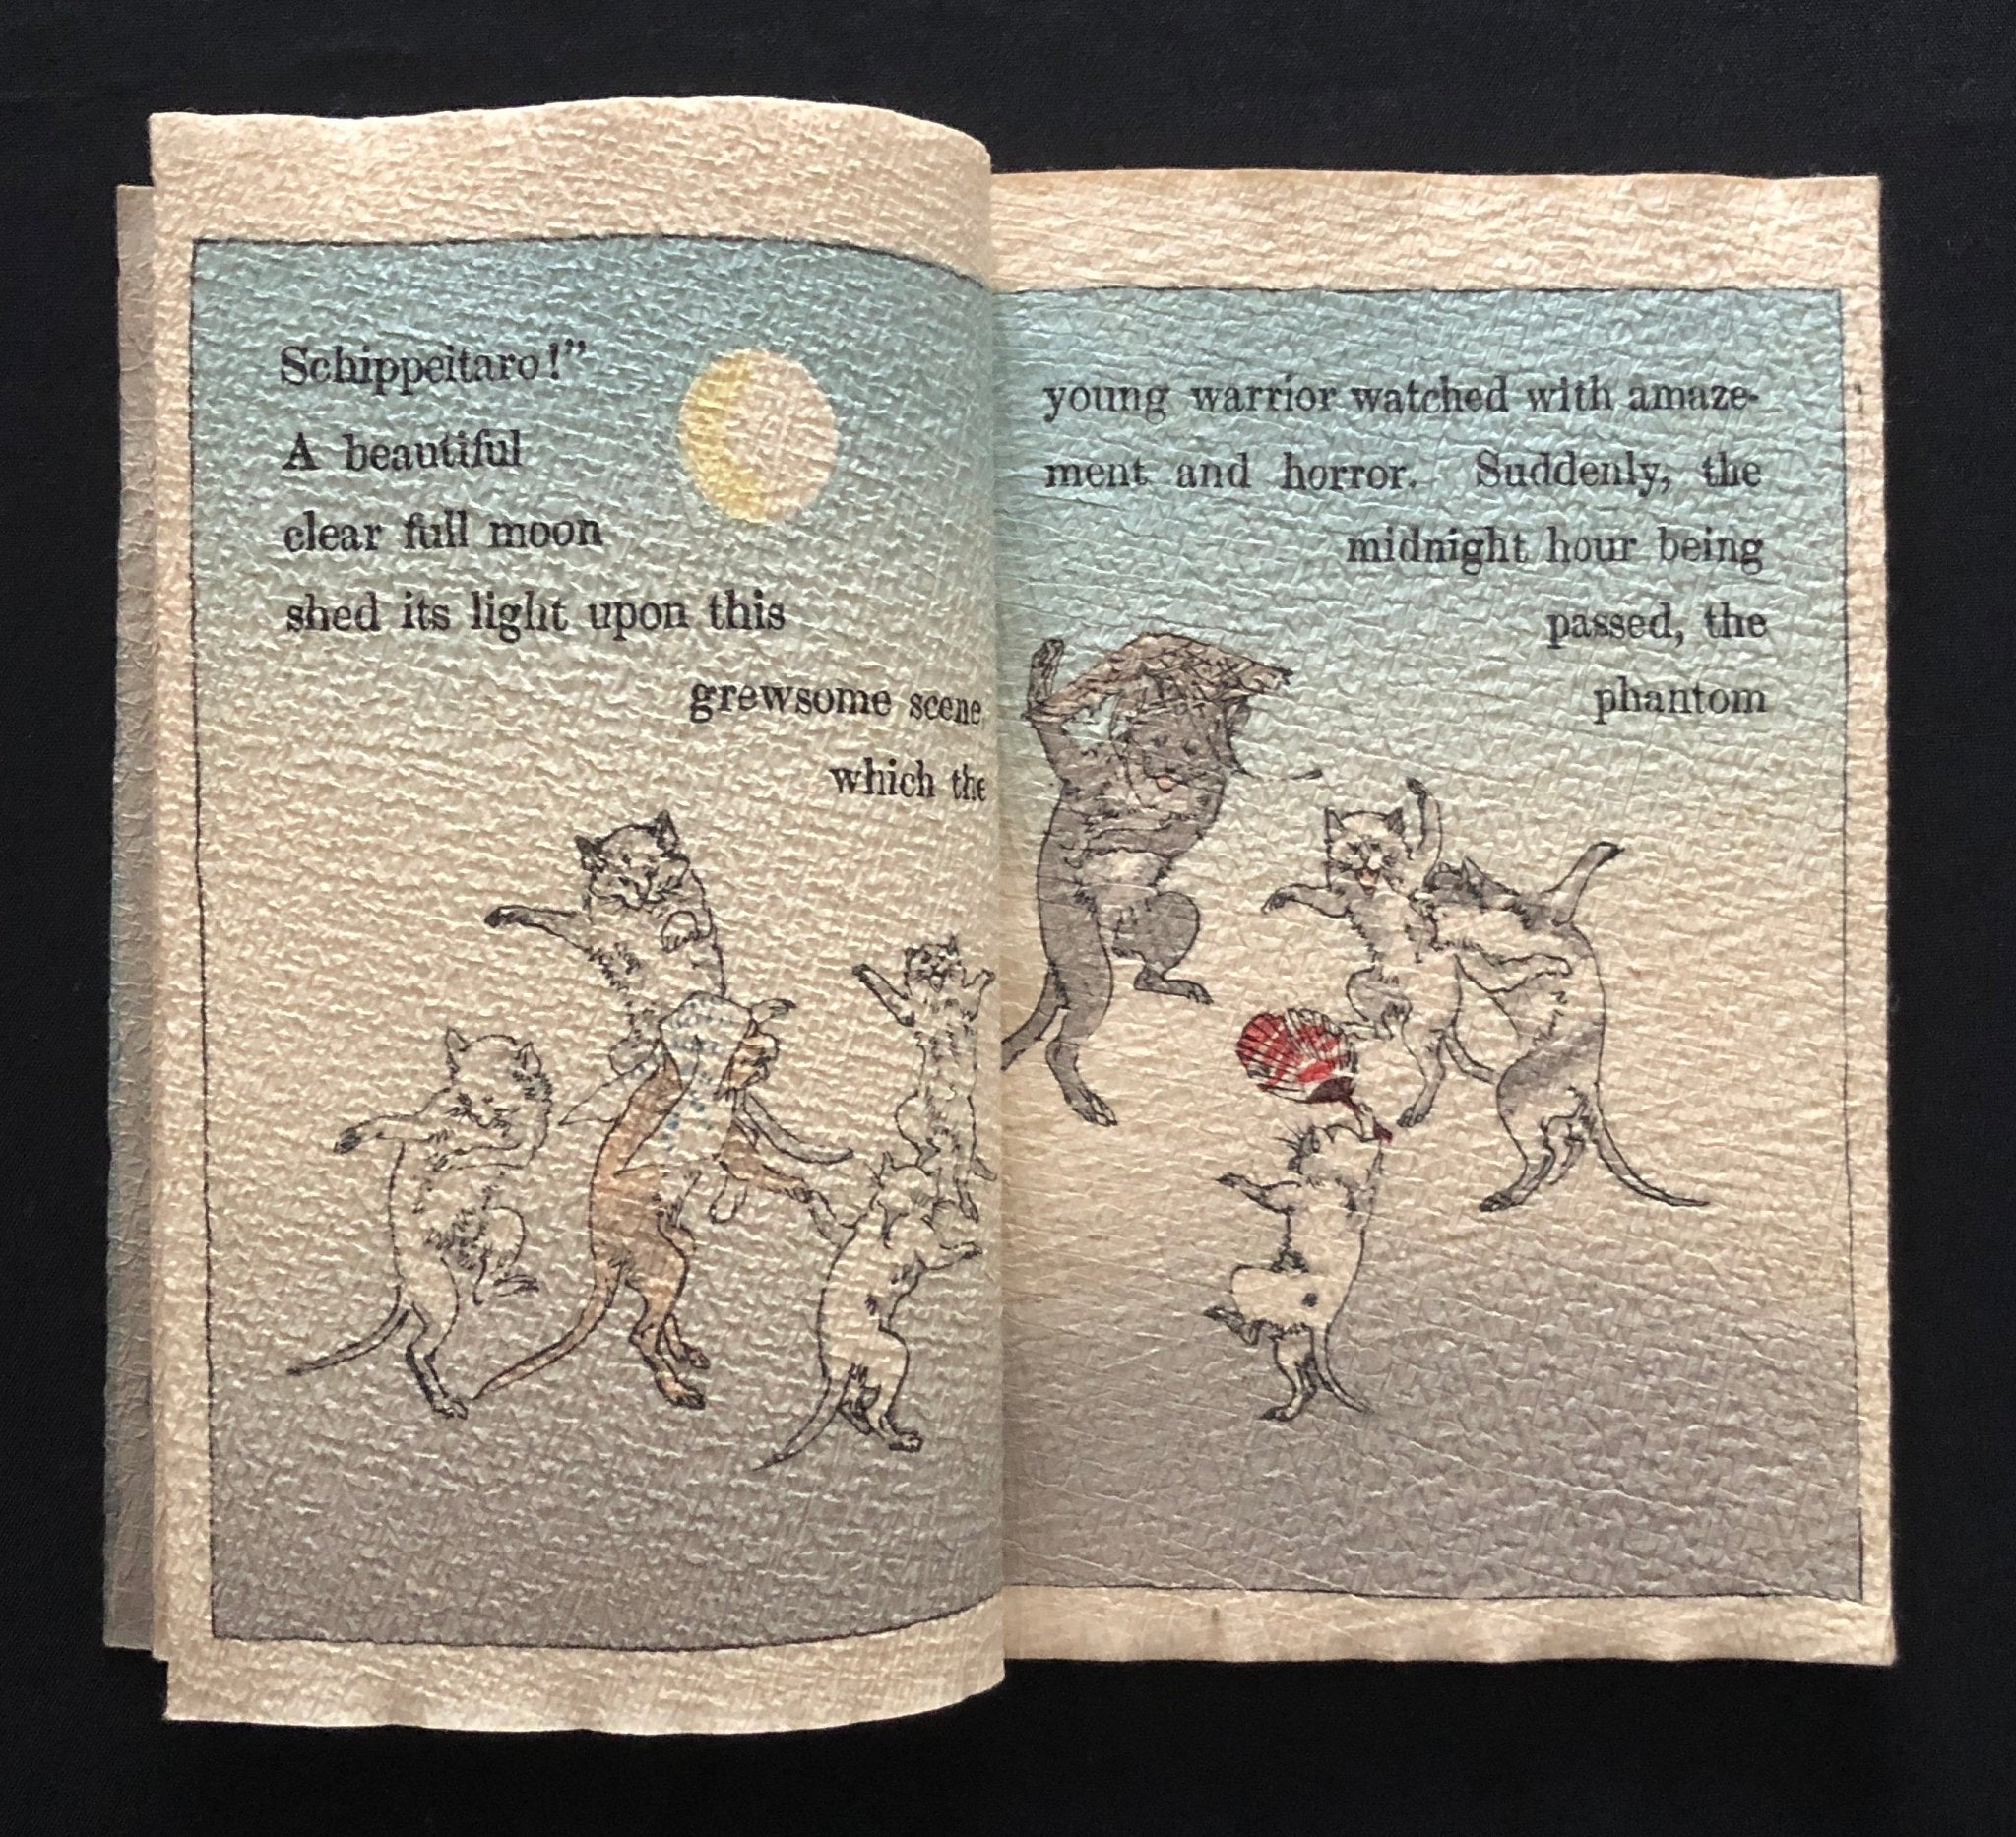 Schippeitaro!”
A beautiful
clear full moon
shed its light upon this
grewsome scene
which the
young warrior watched with amaze-
ment and horror. Suddenly, the
midnight hour being
passed, the
phantom